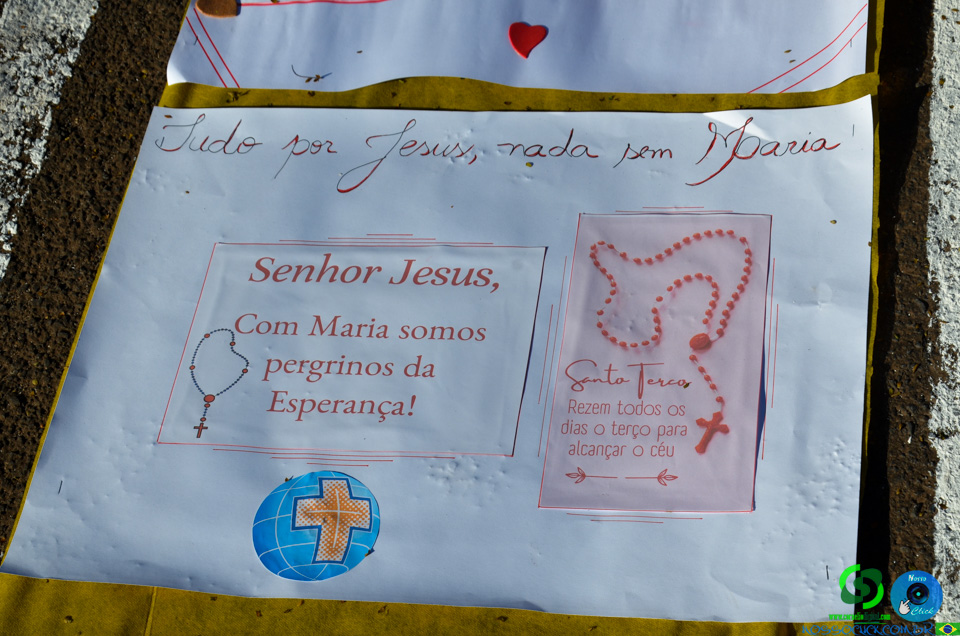 Tudo por Jesus, nada sem Maria!
Senhor Jesus,
Com Maria somos
pergrinos da
Esperança!
Santo Terco
Rezem todos os
dias o terço para
alcançar o céu
Nosso
Click